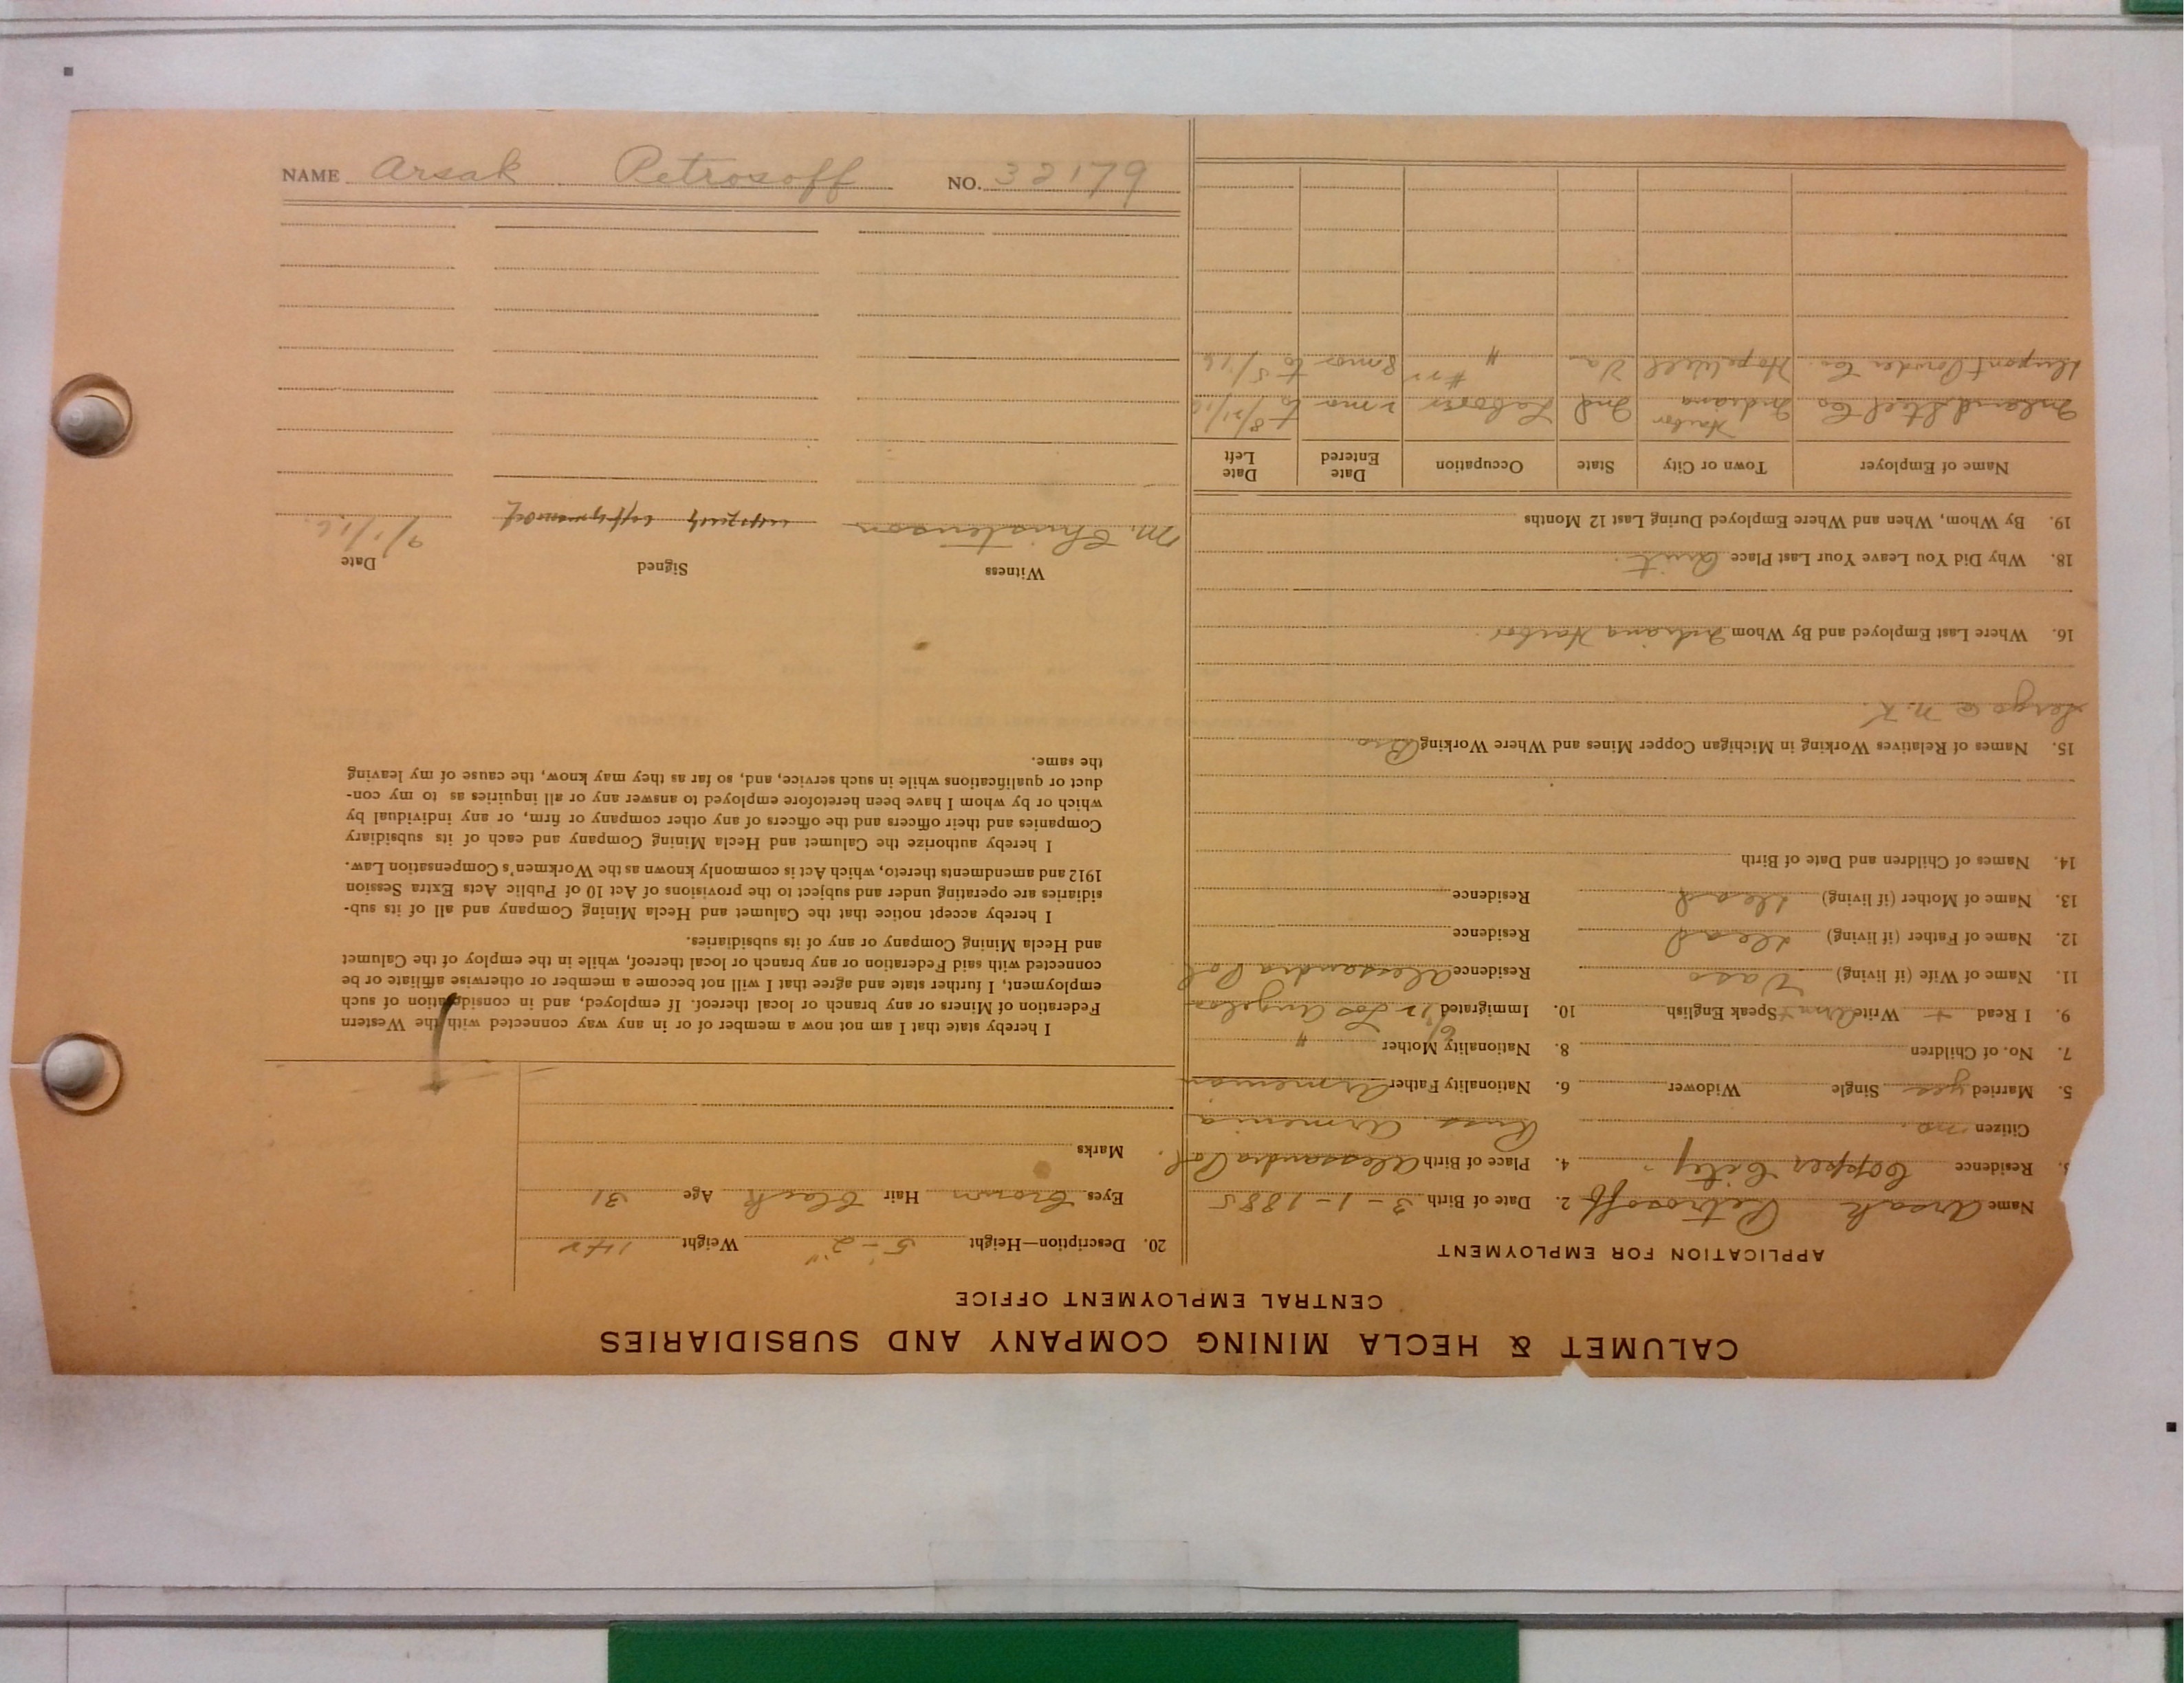 NAME Arsak Petrosoff NO. 32179
CALUMET & HECLA MINING COMPANY AND SUBSIDIARIES
CENTRAL EMPLOYMENT OFFICE
APPLICATION FOR EMPLOYMENT
Name Arsak Petrosoff 2. Date of Birth 3-1-1885
3. Residence Copper City. 4. Place of Birth Alessandra Pol
Citizen no. Russ Armenia
5. Married yes Single Widower 6. Nationality Father Armenian
7. No. of Children 8. Nationality Mother "
9. I Read + Write Speak English 10. Immigrated Los Angelos
11. Name of Wife (if living) Vaso Residence Alessandra Pol
12. Name of Father (if living) dead Residence
13. Name of Mother (if living) dead Residence
14. Names of Children and Date of Birth
15. Names of Relatives Working in Michigan Copper Mines and Where Working Bro.
Sergo @ N. K.
16. Where Last Employed and By Whom Indiana Harbor.
18. Why Did You Leave Your Last Place Quit.
19. By Whom, When and Where Employed During Last 12 Months
Name of Employer Town or City State Occupation Date Entered Date Left
Inland Steel Co Indiana Harbor Ind Laborer 2 mo to 8/21/16
Dupont Powder Co. Hopewell Va " 8 mos to 5/16
20. Description—Height 5'-2" Weight 142
Eyes Brown Hair Black Age 31
Marks
I hereby state that I am not now a member of or in any way connected with the Western
Federation of Miners or any branch or local thereof. If employed, and in consideration of such
employment, I further state and agree that I will not become a member or otherwise affiliate or be
connected with said Federation or any branch or local thereof, while in the employ of the Calumet
and Hecla Mining Company or any of its subsidiaries.
I hereby accept notice that the Calumet and Hecla Mining Company and all of its sub-
sidiaries are operating under and subject to the provisions of Act 10 of Public Acts Extra Session
1912 and amendments thereto, which Act is commonly known as the Workmen's Compensation Law.
I hereby authorize the Calumet and Hecla Mining Company and each of its subsidiary
Companies and their officers and the officers of any other company or firm, or any individual by
which or by whom I have been heretofore employed to answer any or all inquiries as to my con-
duct or qualifications while in such service, and, so far as they may know, the cause of my leaving
the same.
Witness Signed Date
M. Christenson 9/1/16.